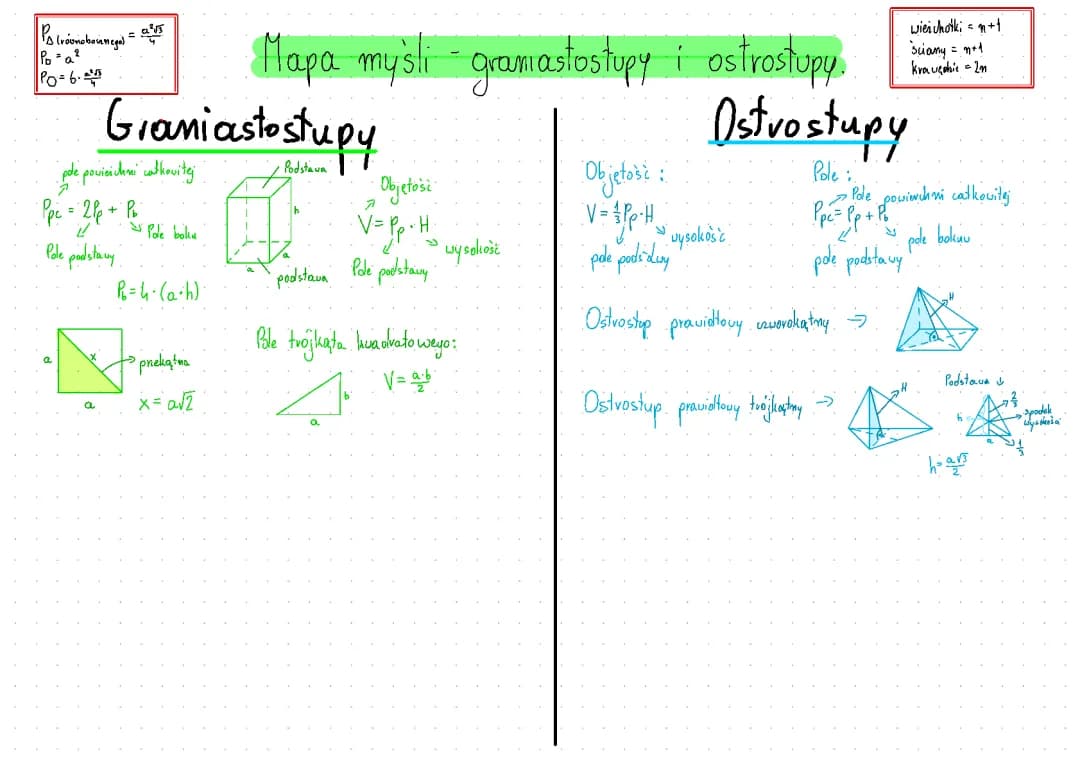 P△ (równobocznego) = a²√3/4
P□ = a²
P⬡ = 6 · a²√3/4
Mapa myśli - graniastosłupy i ostrosłupy.
wierzchołki = n+1
ściany = n+1
krawędzie = 2n
Graniastosłupy
pole powierzchni całkowitej
Ppc = 2Pp + Pb
Pole boku
Pole podstawy
Pb = 4 · (a·h)
Podstawa
h
a
a
podstawa
Objętość
V = Pp · H
wysokość
Pole podstawy
a
x
przekątna
a
x = a√2
Pole trójkąta kwadratowego:
V = a·b/2
b
a
Ostrosłupy
Objętość :
V = 1/3 Pp · H
wysokość
pole podstawy
Pole :
Pole powierzchni całkowitej
Ppc = Pp + Pb
pole boków
pole podstawy
Ostrosłup prawidłowy czworokątny →
H
Ostrosłup prawidłowy trójkątny →
H
Podstawa ↓
2/3
h
spodek
wysokości
a
1/3
h = a√3/2